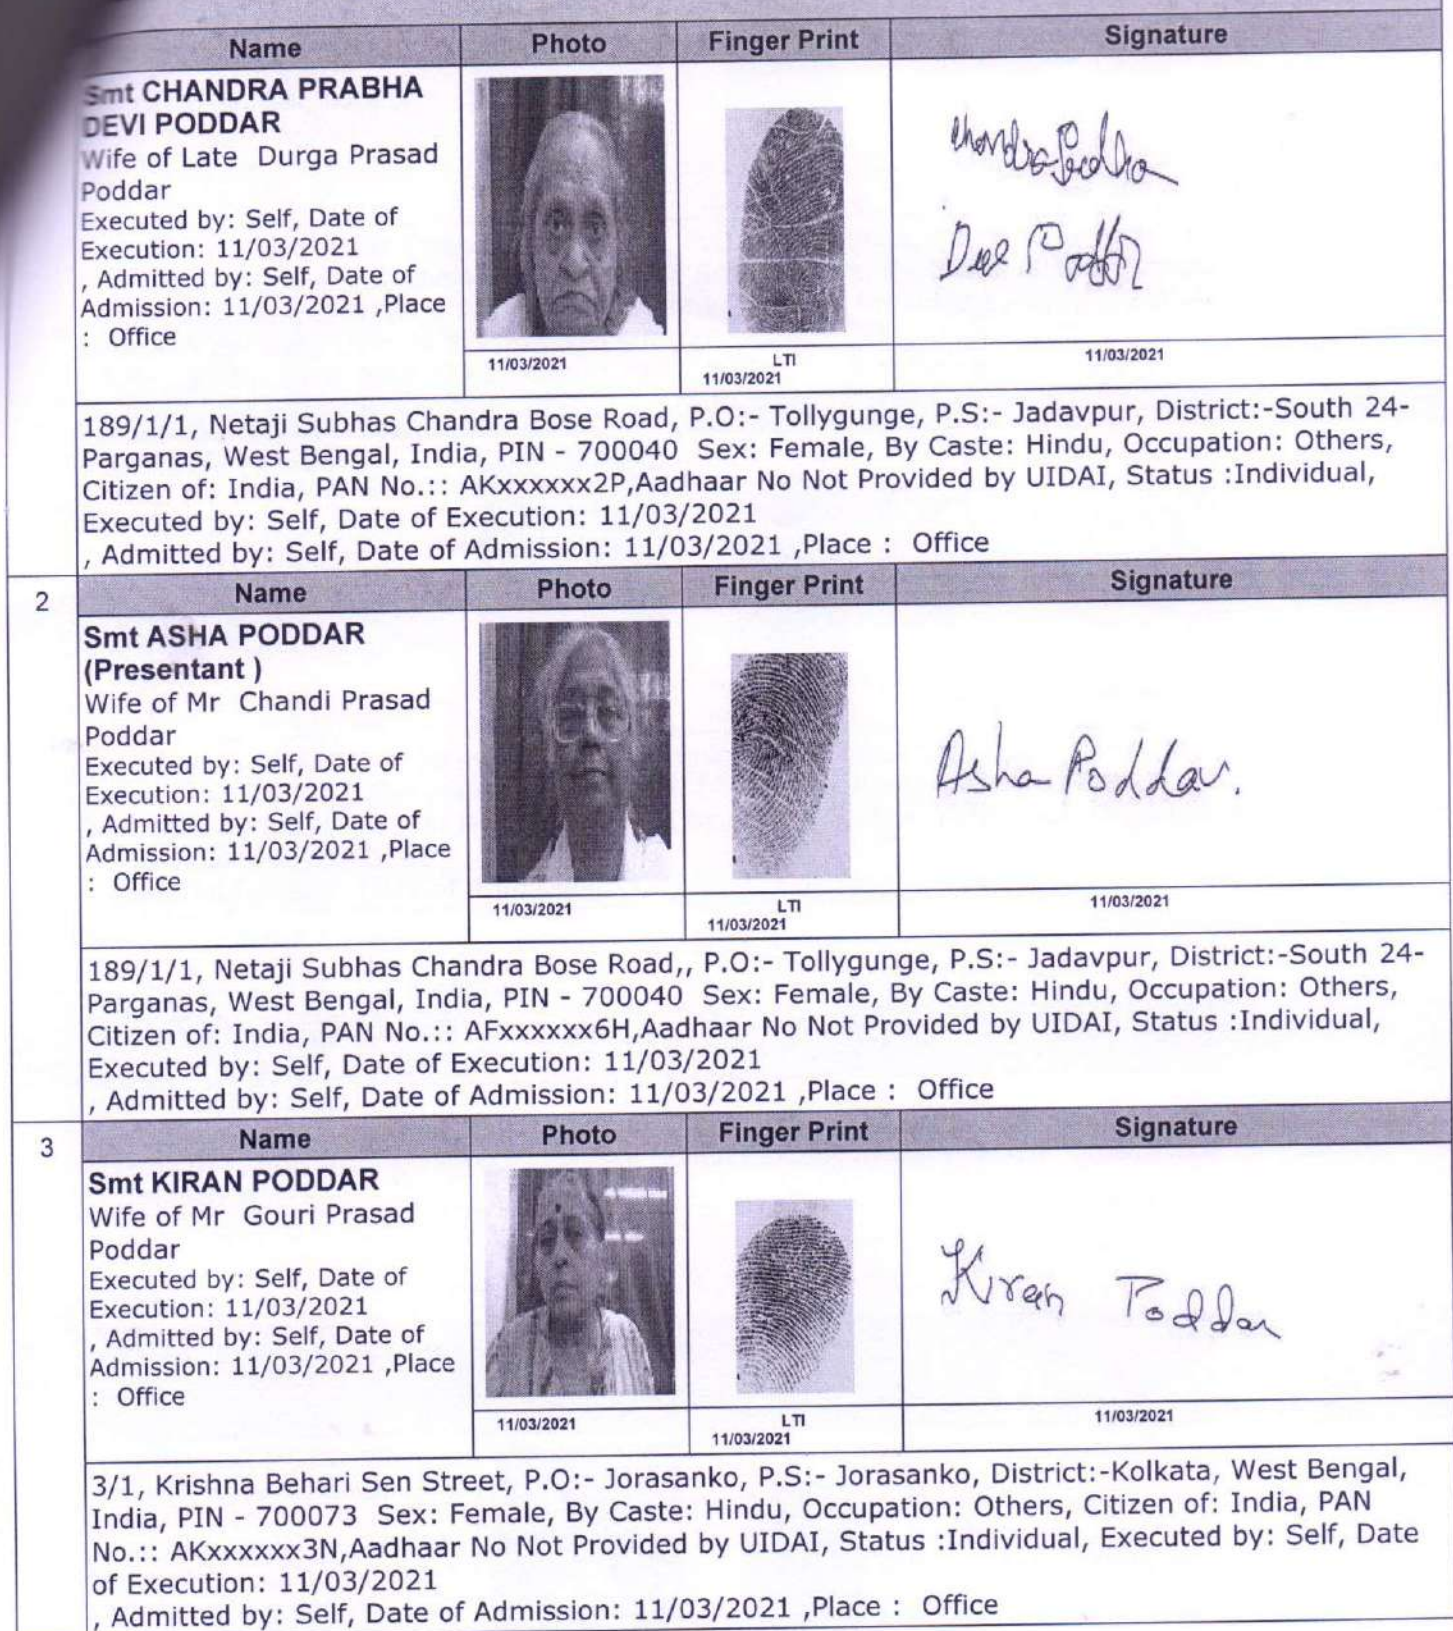 Name Photo Finger Print Signature
Smt CHANDRA PRABHA
DEVI PODDAR
Wife of Late Durga Prasad
Poddar
Executed by: Self, Date of
Execution: 11/03/2021
, Admitted by: Self, Date of
Admission: 11/03/2021 ,Place
: Office
Chandra Prabha
Devi Poddar
11/03/2021
LTI
11/03/2021
11/03/2021
189/1/1, Netaji Subhas Chandra Bose Road, P.O:- Tollygunge, P.S:- Jadavpur, District:-South 24-
Parganas, West Bengal, India, PIN - 700040 Sex: Female, By Caste: Hindu, Occupation: Others,
Citizen of: India, PAN No.:: AKxxxxxx2P,Aadhaar No Not Provided by UIDAI, Status :Individual,
Executed by: Self, Date of Execution: 11/03/2021
, Admitted by: Self, Date of Admission: 11/03/2021 ,Place : Office
2
Name Photo Finger Print Signature
Smt ASHA PODDAR
(Presentant )
Wife of Mr Chandi Prasad
Poddar
Executed by: Self, Date of
Execution: 11/03/2021
, Admitted by: Self, Date of
Admission: 11/03/2021 ,Place
: Office
Asha Poddar.
11/03/2021
LTI
11/03/2021
11/03/2021
189/1/1, Netaji Subhas Chandra Bose Road,, P.O:- Tollygunge, P.S:- Jadavpur, District:-South 24-
Parganas, West Bengal, India, PIN - 700040 Sex: Female, By Caste: Hindu, Occupation: Others,
Citizen of: India, PAN No.:: AFxxxxxx6H,Aadhaar No Not Provided by UIDAI, Status :Individual,
Executed by: Self, Date of Execution: 11/03/2021
, Admitted by: Self, Date of Admission: 11/03/2021 ,Place : Office
3
Name Photo Finger Print Signature
Smt KIRAN PODDAR
Wife of Mr Gouri Prasad
Poddar
Executed by: Self, Date of
Execution: 11/03/2021
, Admitted by: Self, Date of
Admission: 11/03/2021 ,Place
: Office
Kiran Poddar
11/03/2021
LTI
11/03/2021
11/03/2021
3/1, Krishna Behari Sen Street, P.O:- Jorasanko, P.S:- Jorasanko, District:-Kolkata, West Bengal,
India, PIN - 700073 Sex: Female, By Caste: Hindu, Occupation: Others, Citizen of: India, PAN
No.:: AKxxxxxx3N,Aadhaar No Not Provided by UIDAI, Status :Individual, Executed by: Self, Date
of Execution: 11/03/2021
, Admitted by: Self, Date of Admission: 11/03/2021 ,Place : Office